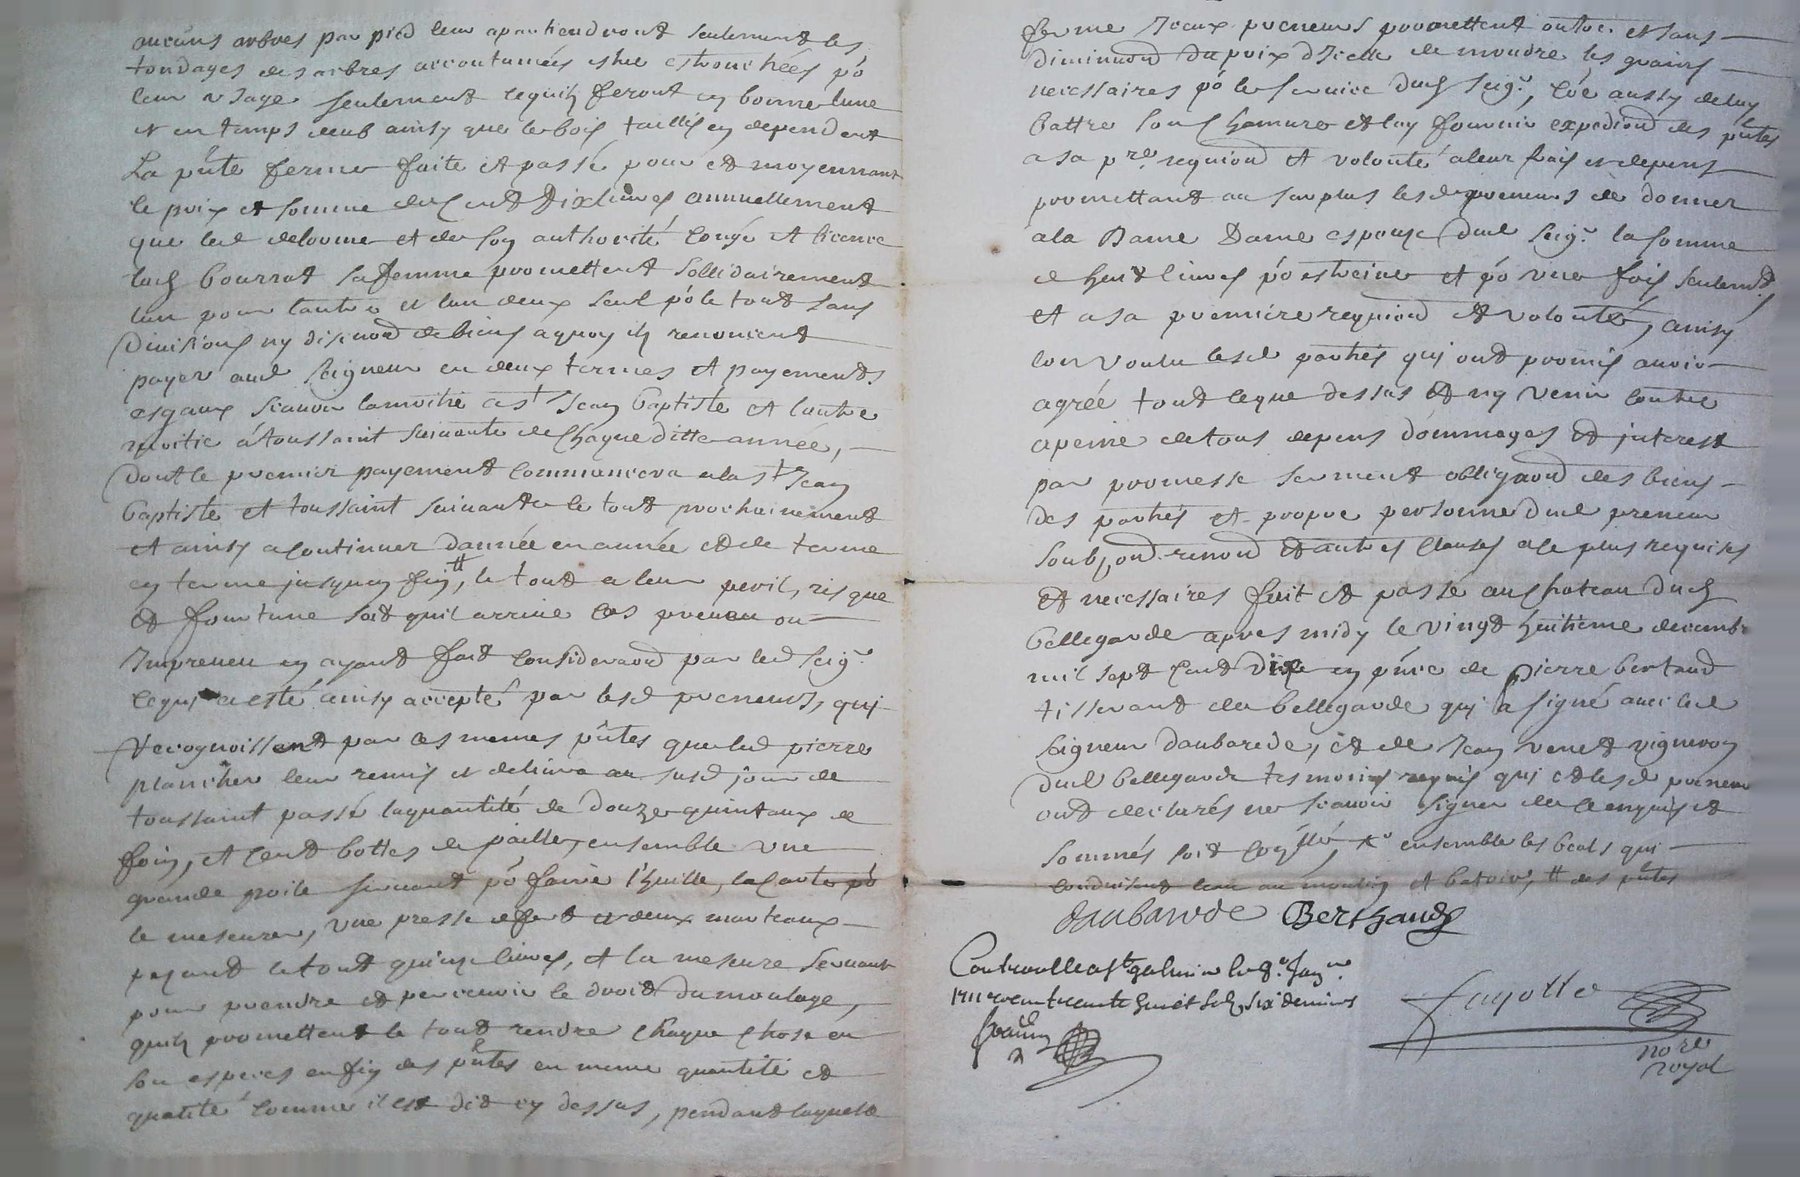 aucuns arbres par pied leur apartiendront seulement les
tondages des arbres accoutumées estre estronchées po
leur usage seulement ce quilz feront en bonne lune
et en temps deub ainsy que le bois taillis en dependent
La pnte ferme faite et passé pour et moyennant
le prix et somme de Cent dix livres annuellement
que led delorme et de son authorité Congé et licence
lad bourrat sa femme promettent sollidairement
lun pour lautre et lun deux seul po le tout sans
Divisions ny de biens a quoy ilz renoncent
payer aud Seigneur en deux termes et payements
esgaux scavoir la moitié a st Jean Baptiste et lautre
moitié a toussaint suivante de Chaque ditte année,
dont le premier payement Commancera a la st Jean
baptiste et toussaint suivante le tout prochainement
et ainsy a Continuer dannée en année et de terme
en terme jusquen fin, le tout a leur peril, risque
et fourtune soit quil arrive Cas preveu ou
Impreveu en ayant fait Consideraon par led seigr
ce qui a esté ainsy accepté par lesd preneurs, qui
recognoissent par ces memes pntes que led pierre
plancher leur remis et delivra au susd jour de
toussaint passé la quantité de Douze quintaux de
foin, et Cent bottes de paille, ensemble une
grande poile servant po faire l'huille,
le mesurer, une presse de fert et deux marteaux
pezant le tout quinze livres, et la mesure servant
pour prendre et percevoir le droit du moulage,
quilz promettent le tout rendre Chaque Chose en
son especes en fin des pntes en meme quantité et
qualité Comme il est dit cy dessus, pendant laquelle
ferme Iceux preneurs promettent outre et sans
diminuon du prix dIcelle de moudre les grains
necessaires po le service dud Seigr, Coe aussy de luy
battre son Chamure et luy fournir expedion des pntes
a sa pre requion et volonté a leur frais et depens
promettant au surplus lesd preneurs de donner
a la Dame Dame espouze dud Seigr la somme
de huit livres po estreine et po une fois seulemt
et a sa premiere requion et volonté, ainsy
lon voulu lesd parties qui ont promis avoir
agréé tout ce que dessus et ny venir Contre
a peine de tous depens dommages et interest
par promesse serment obligaon des biens
des parties et propre personne dud preneur
soub, renon et autres Clauses a ce plus requises
et necessaires fait et passé au Chateau dud
bellegarde apres midy le vingt huitieme decembre
mil sept Cent Dix en pnce de Pierre bertaud
tisserant de bellegarde qui a signé avec led
Seigneur daubarede, et de Jean venet vigneron
dud bellegarde tesmoins requis qui et lesd preneurs
ont declarés ne scavoir signer de ce enquis et
sommés soit ensemble les beals qui
conduisent leau au moulin et batoir, des pntes
daubarede Berthaud
Controulle a st galmier le Janer
1711 receu trente huict solz six deniers
fayolle
nore
royal